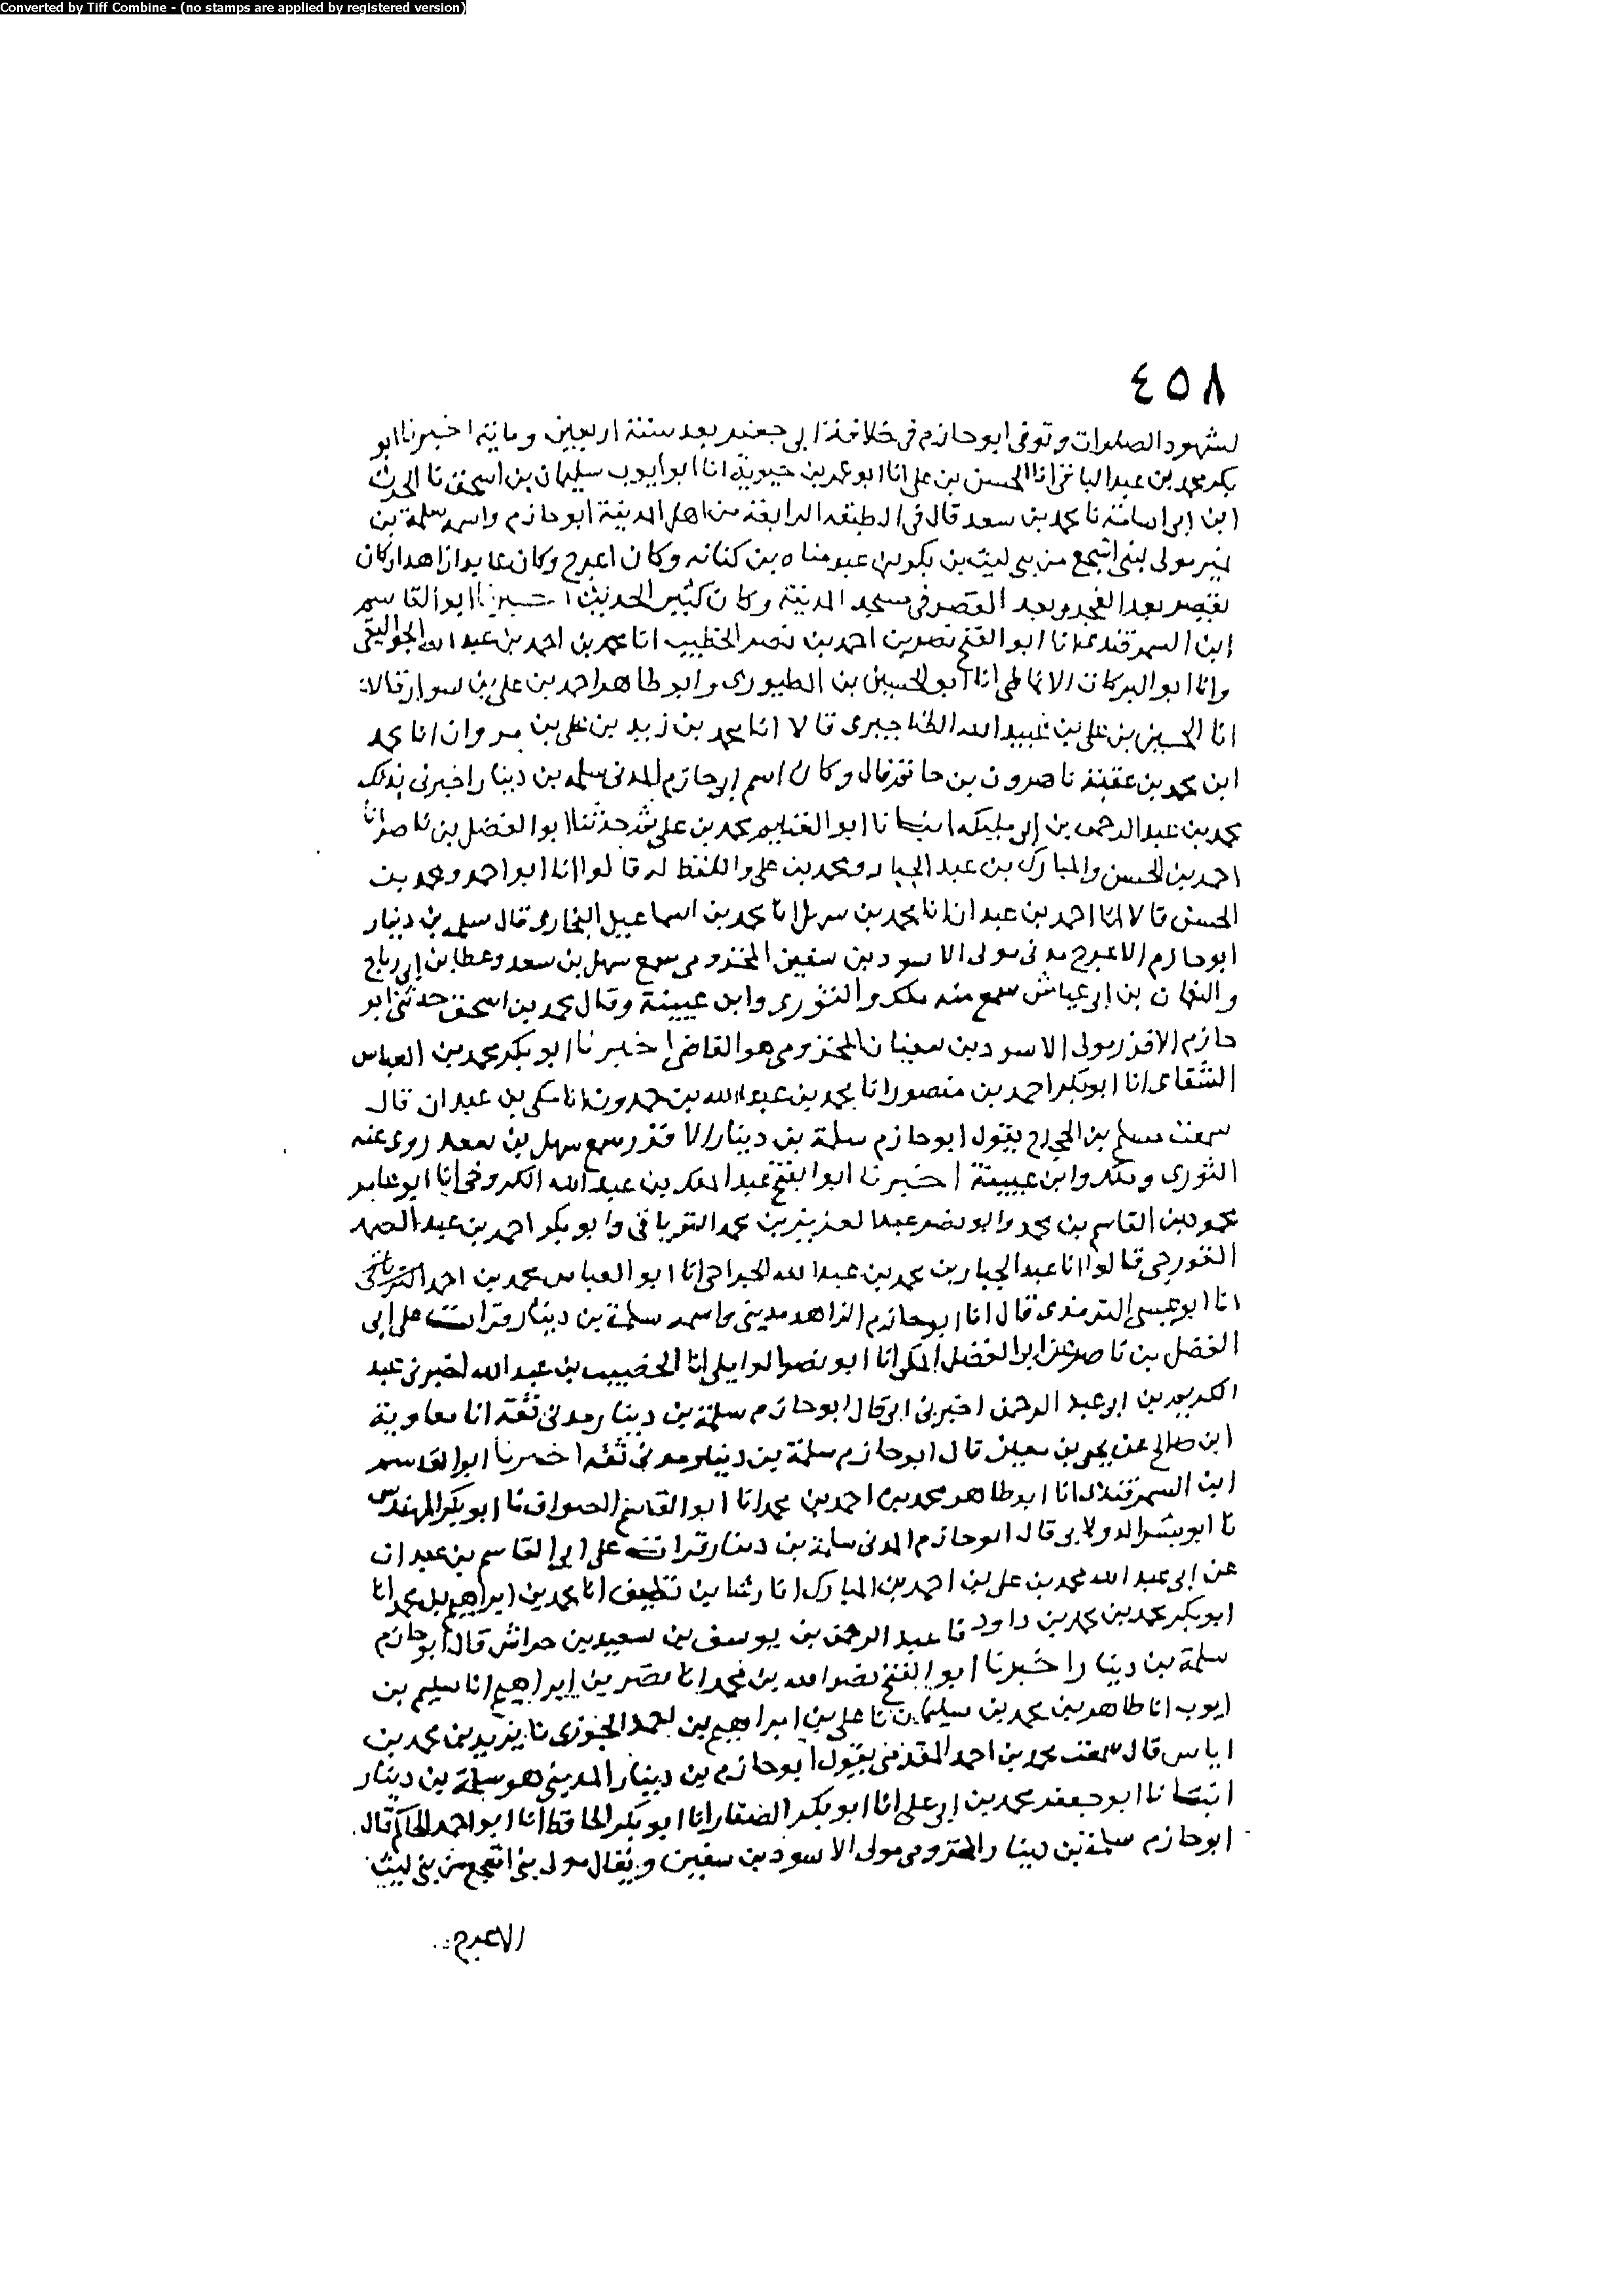 Converted by Tiff Combine - (no stamps are applied by registered version)
٤٥٨
لشهود الصلوات وتوفى ابو حازم فى خلافة ابى جعفر بعد سنة اربعين ومائة اخبرنا ابو
بكر محمد بن عبد الباقى انا الحسن بن على انا ابو عمر بن حيوية انا ابو ايوب سليمان بن اسحق نا الحرث
ابن ابى اسامة نا محمد بن سعد قال فى الطبقه الرابعة من اهل المدينة ابو حازم واسمه سلمة بن
مولى لبنى اشجع من بنى ليث بن بكر بن عبد مناه بن كنانه وكان اعرج وكان عابدا زاهدا وكان
يقص بعد الفجر وبعد العصر فى مسجد المدينة وكان كثير الحديث اخبرنا ابو القاسم
ابن السمرقندى انا ابو الفتح نصر بن احمد بن نصر الخطيب انا محمد بن احمد بن عبد الله الجواليقى
وانا ابو البركات الانماطى انا ابو الحسين بن الطيورى وابو طاهر احمد بن على بن سوار قالا
انا الحسين بن على بن عبيد الله الطناجيرى قالا انا محمد بن زيد بن على بن مروان انا محمد
ابن محمد بن عقبة نا هرون بن حاتم قال وكان اسم ابى حازم المدنى سلمه بن دينار اخبرنى بذلك
محمد بن عبد الرحمن بن ابى مليكه انبانا ابو الغنايم محمد بن على ثم حدثنا ابو الفضل بن ناصر انا
احمد بن الحسن والمبارك بن عبد الجبار ومحمد بن على واللفظ له قالوا انا ابو احمد ومحمد بن
الحسن قالا انا احمد بن عبدان انا محمد بن سهل انا محمد بن اسماعيل البخارى قال سلمه بن دينار
ابو حازم الاعرج مدنى مولى الاسود بن سفين المخزومى سمع سهل بن سعد وعطا بن ابى رباح
والنعمان بن ابى عياش سمع منه ملك والثورى وابن عيينة وقال محمد بن اسحق حدثنى ابو
حازم الافزر مولى الاسود بن سفيان المخزومى هو القاضى اخبرنا ابو بكر محمد بن العباس
الشقانى انا ابو بكر احمد بن منصور انا محمد بن عبد الله بن حمدون انا مكى بن عبدان قال
سمعت مسلم بن الحجاج يقول ابو حازم سلمة بن دينار الافزر سمع سهل بن سعد روى عنه
الثورى وملك وابن عيينة اخبرنا ابو الفتح عبد الملك بن عبد الله الكروخى انا ابو عامر
محمود بن القاسم بن محمد وابو نصر عبد العزيز بن محمد الترياقى وابو بكر احمد بن عبد الصمد
الغورجى قالوا انا عبد الجبار بن محمد بن عبد الله الجراحى انا ابو العباس محمد بن احمد
انا ابو عيسى الترمذى قال انا ابو حازم الزاهد مدينى واسمه سلمة بن دينار قرات على ابى
الفضل بن ناصر عن ابى الفضل المكى انا ابو نصر الوايلى انا الخصيب بن عبد الله اخبرنى عبد
الكريم بن ابى عبد الرحمن اخبرنى ابى قال ابو حازم سلمة بن دينار مدنى ثقة انا معاوية
ابن صالح عن يحيى بن معين قال ابو حازم سلمة بن دينار مدنى ثقه اخبرنا ابو القاسم
ابن السمرقندى انا ابو طاهر محمد بن احمد بن محمد انا ابو القاسم الصواف نا ابو بكر المهندس
نا ابو بشر الدولابى قال ابو حازم المدنى سلمة بن دينار قرات على ابى القاسم بن عبدان
عن ابى عبد الله محمد بن على بن احمد بن المبارك انا رشا بن نظيف انا محمد بن ابراهيم بن محمد انا
ابو بكر محمد بن محمد بن داود نا عبد الرحمن بن يوسف بن سعيد بن خراش قال ابو حازم
سلمة بن دينار اخبرنا ابو الفتح نصر الله بن محمد انا نصر بن ابراهيم انا سليم بن
ايوب انا طاهر بن محمد بن سليمان نا على بن ابراهيم بن احمد الجوزى نا يزيد بن محمد بن
اياس قال سمعت محمد بن احمد المقدمى يقول ابو حازم بن دينار المدينى هو سلمة بن دينار
انبانا ابو جعفر محمد بن ابى على انا ابو بكر الصفار انا ابو بكر الحافظ انا ابو احمد الحاكم قال
ابو حازم سلمة بن دينار المخزومى مولى الاسود بن سفين ويقال مولى بنى اشجع من بنى ليث
الاعرج